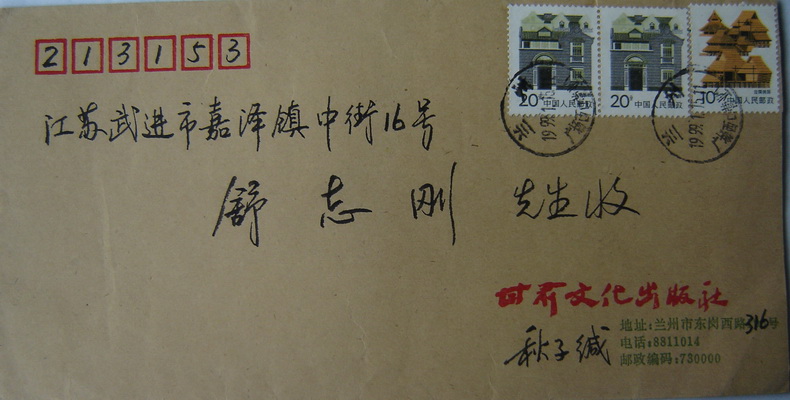 213153
20分 中国人民邮政
20分 中国人民邮政
10分 中国人民邮政
江苏武进市嘉泽镇中街16号
舒志刚 先生收
甘肃文化出版社
地址:兰州市东岗西路316号
电话:8811014
邮政编码:730000
秋子缄